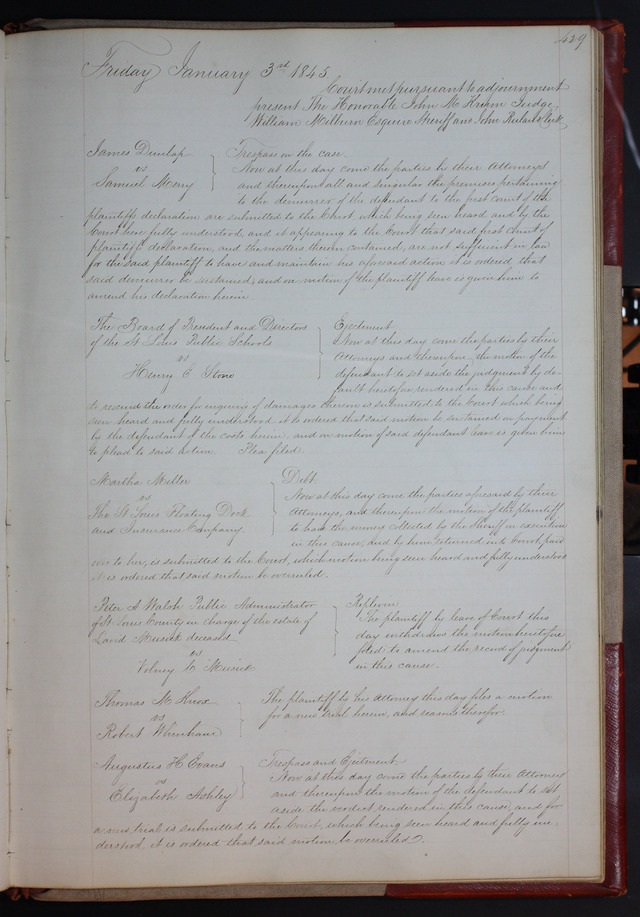 429
Friday January 3rd 1845.
Court met pursuant to adjournment
present The Honorable John M. Krum Judge,
William Milburn Esquire Sheriff and John Ruland Clerk
James Dunlap
vs
Samuel Merry
Trespass on the case.
Now at this day come the parties by their Attorneys
and thereupon all and singular the premises pertaining
to the demurrer of the defendant to the first count of the
plaintiffs declaration are submitted to the Court which being seen heard and by the
Court here fully understood, and it appearing to the Court that said first count of
plaintiffs declaration, and the matters therein contained, are not sufficient in law
for the said plaintiff to have and maintain his aforesaid action it is ordered that
said demurrer be sustained, and on motion of the plaintiff leave is given him to
amend his declaration herein.
The Board of President and Directors
of the St Louis Public Schools
vs
Henry C Stone
Ejectment
Now at this day come the parties by their
Attorneys and thereupon the motion of the
defendant to set aside the judgment by de-
fault heretofore rendered in this cause and
to rescind the order for inquiry of damages therein is submitted to the Court which being
seen heard and fully understood it is ordered that said motion be sustained on payment
by the defendant of the costs herein, and on motion of said defendant leave is given him
to plead to said action. Plea filed.
Martha Miller
vs
The St Louis Floating Dock
and Insurance Company
Debt
Now at this day come the parties aforesaid by their
Attorneys, and thereupon the motion of the plaintiff
to have the money collected by the Sheriff on execution
in this cause, and by him returned into Court, paid
over to her, is submitted to the Court, which motion being seen heard and fully understood
it is ordered that said motion be overruled.
Peter A Walsh Public Administrator
of St Louis County in charge of the estate of
David Musick deceased
vs
Volney C Musick
Replevin
The plaintiff by leave of Court this
day withdraws the motion heretofore
filed to amend the record of judgment
in this cause.
Thomas M. Knox
vs
Robert
The plaintiff by his attorney this day files a motion
for a new trial herein, and reasons therefor.
Augustus H Evans
vs
Elizabeth Ashley
Trespass and Ejectment
Now at this day come the parties by their Attorneys
and thereupon the motion of the defendant to set
aside the verdict rendered in this cause, and for
a new trial is submitted to the Court, which being seen heard and fully un-
derstood, it is ordered that said motion be overruled.